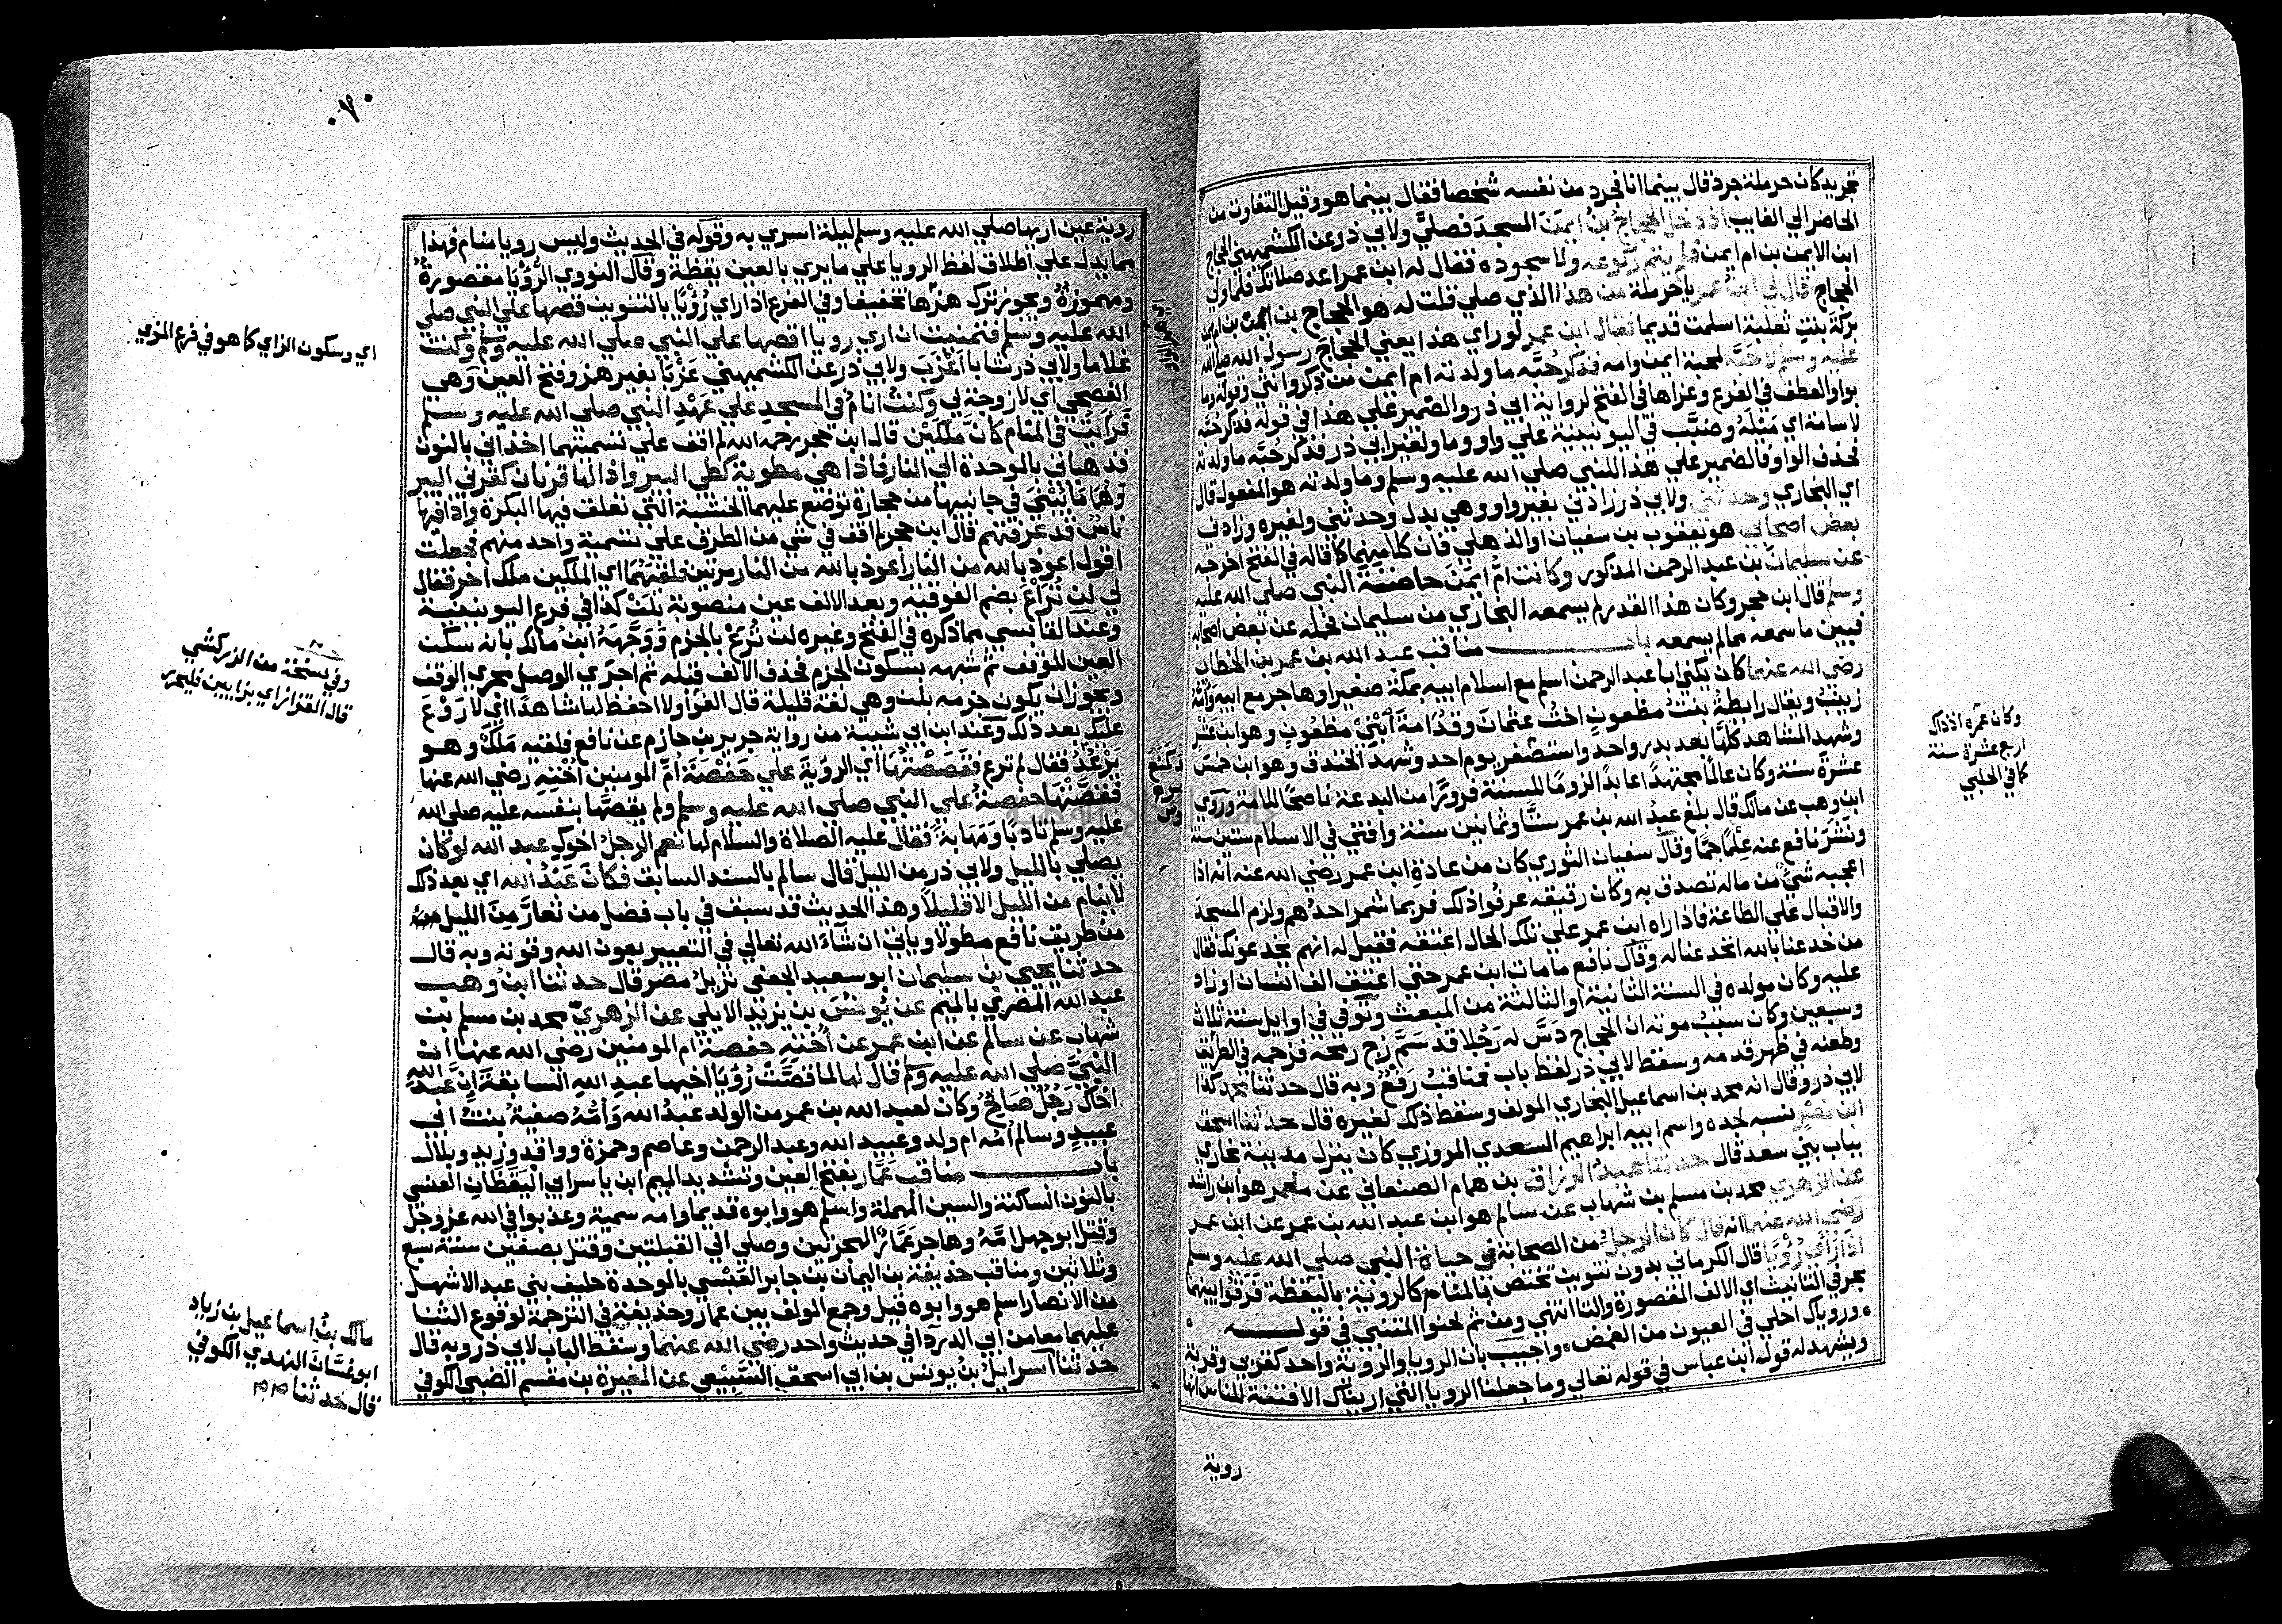 تجريد كان حرملة جرد قال بينما انا فجرد من نفسه شخصا فقال بينما هو وقيل التفاوت من
الحاضر الي الغايب اذ دخل الحجاج بن ايمن المسجد فصلي ولابي ذر عن الكشميهني الحجاج
ابن الايمن بن ام ايمن فلم يتم ركوعه ولا سجوده فقال له ابن عمر اعد صلاتك فلما ولي
الحجاج قال لي ابن عمر يا حرملة من هذا الذي صلي قلت له هو الحجاج بن ايمن بن ام ايمن
بركة بنت ثعلبة اسلمت قديما فقال ابن عمر لو راي هذا يعني الحجاج رسول الله صلي الله
عليه وسلم لاحبه لمحبة ايمن وامه فذكر حبه ما ولدته ام ايمن من ذكر وانثي وقوله وما
بواو العطف في الفرع وعزاها في الفتح لرواية ابي ذر والضمير علي هذا في قوله فذكر حبه
لاسامة اي مثله وضبب في اليونينية علي واو وما ولغير ابي ذر فذكر حبه ما ولدته
فحذف الواو فالضمير علي هذا للنبي صلي الله عليه وسلم وما ولدته هو المفعول قال
اي البخاري وحدثني ولابي ذر زادني بغير واو وهي بدل وحدثني ولغيره وزادني
بعض اصحابي هو يعقوب بن سفيان او الذهلي فان كلا منهما كما قاله في الفتح اخرجه
عن سليمان بن عبد الرحمن المذكور وكانت ام ايمن حاضنة النبي صلي الله عليه
وسلم قال ابن حجر وكان هذا القدر لم يسمعه البخاري من سليمان فحمله عن بعض اصحابه
فبين ما سمعه مما لم يسمعه باب مناقب عبد الله بن عمر بن الخطاب
رضي الله عنهما كان يكني ابا عبد الرحمن اسلم مع اسلام ابيه بمكة صغيرا وهاجر مع ابيه وامه
زينب ويقال رابطة بنت مظعون اخت عثمان وقدامة ابني مظعون وهو ابن عشر
وشهد المشاهد كلها بعد بدر واحد واستصغر يوم احد وشهد الخندق وهو ابن خمس
عشرة سنة وكان عالما مجتهدا عابدا لزوما للسنة فرورا من البدعة ناصحا للامة وروي
ابن وهب عن مالك قال بلغ عبد الله بن عمر ستا وثمانين سنة وافتي في الاسلام ستين سنة
ونشر نافع عنه علما جما وقال سفيان الثوري كان من عادة ابن عمر رضي الله عنه انه اذا
اعجبه شي من ماله تصدق به وكان رقيقه عرفوا ذلك فربما شمر احدهم ولزم المسجد
والاقبال علي الطاعة فاذا راه ابن عمر علي تلك الحال اعتقه فقيل له انهم يخدعونك فقال
من خدعنا بالله انخدعنا له وقال نافع ما مات ابن عمر حتي اعتق الف انسان او زاد
عليه وكان مولده في السنة الثانية او الثالثة من المبعث وتوفي في اوايل سنة ثلاث
وسبعين وكان سبب موته ان الحجاج دس له رجلا قد سم زج رمحه فزحمه في الطريق
وطعنه في ظهر قدمه وسقط لابي ذر لفظ باب فمناقب رفع وبه قال حدثنا محمد كذا
لابي ذر وقال انه محمد بن اسماعيل البخاري المولف وسقط ذلك لغيره قال حدثنا اسحق
ابن نصر نسبه لجده واسم ابيه ابراهيم السعدي المروزي كان ينزل مدينة بخاري
بباب بني سعد قال حدثنا عبد الرزاق بن همام الصنعاني عن معمر هو ابن راشد
عن الزهري محمد بن مسلم بن شهاب عن سالم هو ابن عبد الله بن عمر عن ابن عمر
رضي الله عنهما انه قال كان الرجل من الصحابة في حياة النبي صلي الله عليه وسلم
اذا راي رؤيا قال الكرماني بدون تنوين تختص بالمنام كالروية باليقظة فرقوا بينهما
بحرفي التانيث اي الالف المقصورة والتا انتهي ومن ثم لحنوا المتنبي في قوله
ورؤياك احلي في العيون من الغمض واجيب بان الرويا والروية واحد كقربي وقربة
ويشهد له قول ابن عباس في قوله تعالي وما جعلنا الرويا التي اريناك الا فتنة للناس انها
روية
وكان عمره اذ ذاك
اربع عشرة سنة
كما في الحلبي
روية عين اريها صلي الله عليه وسلم ليلة اسري به وقوله في الحديث وليس رويا منام فهذا
مما يدل علي اطلاق لفظ الرويا علي ما يري بالعين يقظة وقال النووي الرؤيا مقصورة
ومهموزة ويجوز ترك همزها تخفيفا وفي الفرع اذا راي رؤيا بالتنوين قصها علي النبي صلي
الله عليه وسلم فتمنيت ان اري رويا اقصها علي النبي صلي الله عليه وسلم وكنت
غلاما ولابي ذر شابا اعزب ولابي ذر عن الكشميهني عزبا بغير همز وفتح العين وهي
الفصحي اي لا زوجة لي وكنت انام في المسجد علي عهد النبي صلي الله عليه وسلم
فرايت في المنام كان ملكين قال ابن حجر رحمه الله لم اقف علي تسميتهما اخذاني بالنون
فذهبا بي بالموحدة الي النار فاذا هي مطوية كطي البير واذا لها قرنان كقرني البير
وهما ما يبني في جانبيها من حجارة توضع عليهما الخشبة التي تعلق فيها البكرة واذا فيها
ناس قد عرفتهم قال ابن حجر لم اقف في شي من الطرق علي تسمية واحد منهم فجعلت
اقول اعوذ بالله من النار اعوذ بالله من النار مرتين فلقيهما اي الملكين ملك اخر فقال
لي لن تراع بضم الفوقية وبعد الالف عين منصوبة بلن كذا في فرع اليونينية
وعند القابسي مما ذكره في الفتح وغيره لن ترع بالجزم ووجهه ابن مالك بانه سكن
العين للوقف ثم شبهه بسكون الجزم فحذف الالف قبله ثم اجري الوصل مجري الوقف
ويجوز ان يكون جزمه بلن وهي لغة قليلة قال الفرا ولا احفظ لها شاهدا اي لا روع
عليك بعد ذلك وعند ابن ابي شيبة من رواية جرير بن حازم عن نافع فلقيه ملك وهو
يرعد فقال لم ترع فقصصتها اي الروية علي حفصة ام المومنين اخته رضي الله عنها
فقصتها حفصة علي النبي صلي الله عليه وسلم ولم يقصها بنفسه عليه صلي الله
عليه وسلم تادبا ومهابة فقال عليه الصلاة والسلام لها نعم الرجل اخوك عبد الله لو كان
يصلي بالليل ولابي ذر من الليل قال سالم بالسند السابق فكان عبد الله اي بعد ذلك
لا ينام من الليل الا قليلا وهذا الحديث قد سبق في باب فضل من تعار من الليل
من طريق نافع مطولا وياتي ان شاء الله تعالي في التعبير بعون الله وقوته وبه قال
حدثنا يحيي بن سليمان ابو سعيد الجعفي نزيل مصر قال حدثنا ابن وهب
عبد الله المصري بالميم عن يونس بن يزيد الايلي عن الزهري محمد بن مسلم بن
شهاب عن سالم عن ابن عمر عن اخته حفصة ام المومنين رضي الله عنها ان
النبي صلي الله عليه وسلم قال لها لما قصت رؤيا اخيها عبد الله السابقة ان عبد الله
اخاك رجل صالح وكان لعبد الله بن عمر من الولد عبد الله وامه صفية بنت ابي
عبيد وسالم امه ام ولد وعبيد الله وعبد الرحمن وعاصم وحمزة وواقد وزيد وبلال
باب مناقب عمار بفتح العين وتشديد الميم ابن ياسر ابي اليقظان العنسي
بالنون الساكنة والسين المهملة واسلم هو وابوه قديما وامه سمية وعذبوا في الله عز وجل
وقتل ابو جهل امه وهاجر عمار الهجرتين وصلي الي القبلتين وقتل بصفين سنة سبع
وثلاثين ومناقب حذيفة بن اليمان بن جابر العبسي بالموحدة حليف بني عبد الاشهل
من الانصار اسلم هو وابوه قيل وجمع المولف بين عمار وحذيفة في الترجمة لوقوع الثنا
عليهما معا من ابي الدردا في حديث واحد رضي الله عنهما وسقط الباب لابي ذر وبه قال
حدثنا اسرايل بن يونس بن ابي اسحق السبيعي عن المغيرة بن مقسم الضبي الكوفي
اي وسكون الزاي كما هو في فرع المزي
وفي نسخة من الزركشي
قال القزاز اي بزايين فليحرر
مالك بن اسماعيل بن زياد
ابو غسان النهدي الكوفي
قال حدثنا